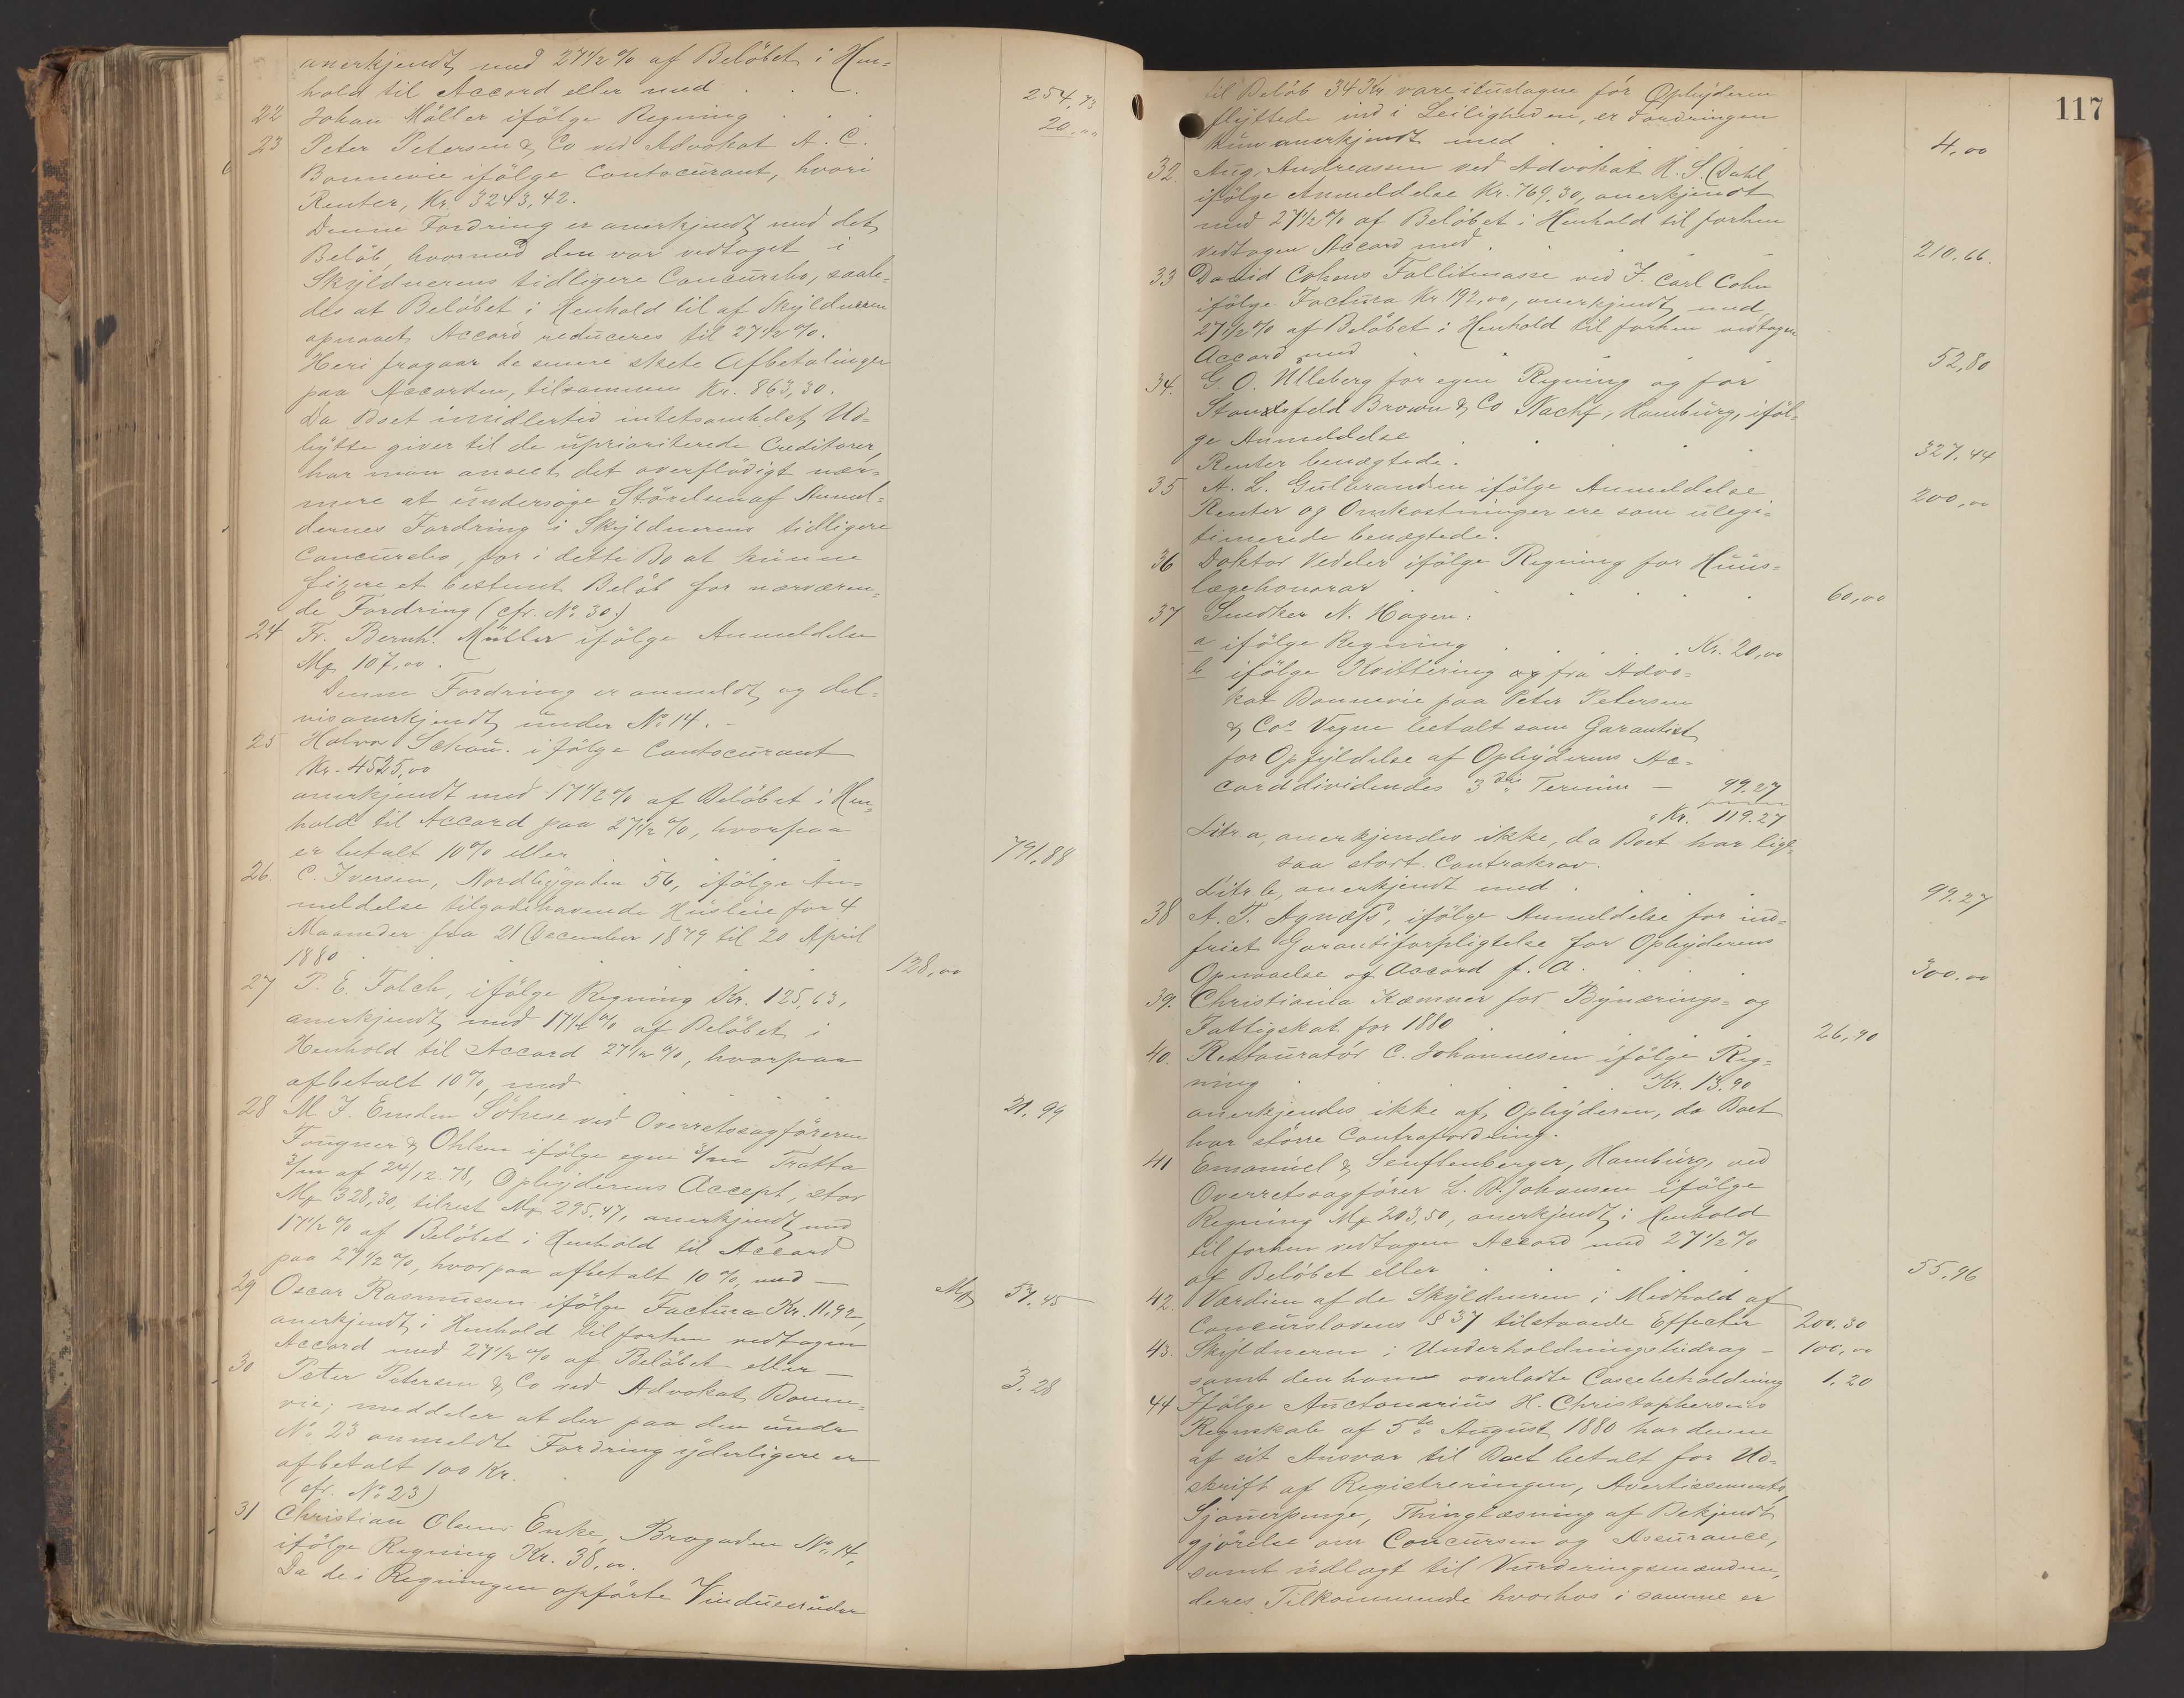 anerkjendt med 27 1/2 % af Belöbet i Hen=
hold til Accord eller med . . . 254,73
22 Johan Möller ifölge Regning . . . 20 „ „
23 Peter Petersen & Co ved Advokat A. C.
Bonnevie ifölge Contocurant, hvori
Renter, Kr. 3243,42.
Denne Fordring er anerkjendt med det
Belöb, hvormed den var vedtaget i
Skyldnerens tidligere Concursbo, saale=
des at Belöbet i Henhold til af Skyldneren
opnaaet Accord reduceres til 27 1/2 %.
Heri fragaar de senere skete Afbetalinger
paa Accorden, tilsammen Kr. 863,30.
Da Boet imidlertid intetsomhelst Ud=
bytte giver til de uprioriterede Creditorer,
har man anseet det overflödigt nær=
mere at undersöge Störelsen af Anmel=
dernes Fordring i Skyldnerens tidligere
Concursbo, for i dette Bo at kunne
fixere et bestemt Belöb for nærværen=
de Fordring (cfr. No 30.)
24 Fr. Bernh. Müller ifölge Anmeldelse
Mp 107,00.
Denne Fordring er anmeldt og del=
vis anerkjendt under No 14. -
25 Halvor Schou. ifölge Contocurant
Kr. 4525,00
anerkjendt med 17 1/2 % af Belöbet i Hen=
hold til Accord paa 27 1/2 %, hvorpaa
er betalt 10 % eller . . . 791,88
26. C. Iversen, Nordbygaden 56, ifölge An=
meldelse tilgodehavende Husleie for 4
Maaneder fra 21 December 1879 til 20 April
1880 . . . 128,00
27 P. E. Falch, ifölge Regning Kr. 125,63,
anerkjendt med 17 1/2 % af Belöbet i
Henhold til Accord 27 1/2 %, hvorpaa
afbetalt 10 %, med . . . 21,99
28 M. J. Emden Söhne ved Overretssagföreren
Fougner & Ohlsen ifölge egen 3/m Tratta
3/m af 24/12.78, Opbyderens Accept, stor
Mp 328,30, tilrest Mp 295,47, anerkjendt med
17 1/2 % af Belöbet i Henhold til Accord
paa 27 1/2 %, hvorpaa afbetalt 10 %, med — Mp 57,45
29 Oscar Rasmussen ifölge Factura Kr. 11.92,
anerkjendt i Henhold til forhen vedtagen
Accord med 27 1/2 % af Belöbet eller — 3,28
30 Peter Petersen & Co ved Advokat Bonne=
vie, meddeler at der paa den under
No 23 anmeldte Fordring yderligere er
afbetalt 100 Kr.
(cfr. No 23)
31 Christian Olsens Enke, Brogaden No 14,
ifölge Regning Kr. 38,00.
Da de i Regningen opförte Vinduesruder
117
til Belöb 34 Kr vare ituslagne för Opbyderen
flyttede ind i Leiligheden, er Fordringen
kun anerkjendt med . . . 4,00
32. Aug. Andreassen ved Advokat H. S. Dahl
ifölge Anmeldelse Kr. 769,30, anerkjendt
med 27 1/2 % af Belöbet i Henhold til forhen
vedtagen Accord med . . . 210.66.
33 David Cohens Fallitmasse ved J. Carl Cohn
ifölge Factura Kr. 192,00, anerkjendt med
27 1/2 % af Belöbet i Henhold til forhen vedtagen
Accord med . . . 52,80
34. G. O. Ulleberg for egen Regning og for
feld Brown & Co Nachf, Hamburg, iföl=
ge Anmeldelse . . . 327.44
Renter benægtede.
35 A. L. Gulbrandsen ifölge Anmeldelse 200,00
Renter og Omkostninger ere som ulegi=
timerede benægtede.
36 Doktor Vedeler ifölge Regning for Huus=
lægehonorar . . . 60,00
37 Snedker N. Hagen:
a ifölge Regning . . . Kr. 20,00
b ifölge Kvittering af fra Advo=
kat Bonnevie paa Peter Petersen
& Cos Vegne betalt som Garantist
for Opfyldelse af Opbyderens Ac=
corddividendes 3die Termin — 99.27
Kr. 119.27
Litr. a, anerkjendes ikke, da Boet har lige=
saa stort Contrakrav.
Litr. b, anerkjendt med . . . 99.27
38 A. T. Agnæss, ifölge Anmeldelse for ind=
friet Garantiforpligtelse for Opbyderens
Opnaaelse af Accord f. A. . . . 300.00
39. Christiania Kæmner for Bynærings= og
Fattigskat for 1880 . . . 26,90
40. Restauratör C. Johannesen ifölge Reg=
ning . . . Kr. 13.90
anerkjendes ikke af Opbyderen, da Boet
har större Contrafordring.
41 Emanuel & Senftenberger, Hamburg, ved
Overretssagförer L. B. Johansen ifölge
Regning Mp 203,50, anerkjendt i Henhold
til forhen vedtagen Accord med 27 1/2 %
af Belöbet eller . . . 55.96
42. Værdien af de Skyldneren i Medhold af
Concurslovens § 37 tilstaaede Effecter 200.30
43. Skyldneren i Underholdningsbidrag — 100,00
samt den ham overladte Cassebeholdning 1.20
44 Ifölge Auctonarius H. Christophersens
Regnskab af 5te August 1880 har denne
af sit Ansvar til Boet betalt for Ud=
skrift af Registreringen, Avertissements,
Sjouerpenge, Thinglæsning af Bekjendt
gjörelse om Concursen og Assurance,
samt udlagt til Vurderingsmændene,
deres Tilkommende hvorhos i samme er